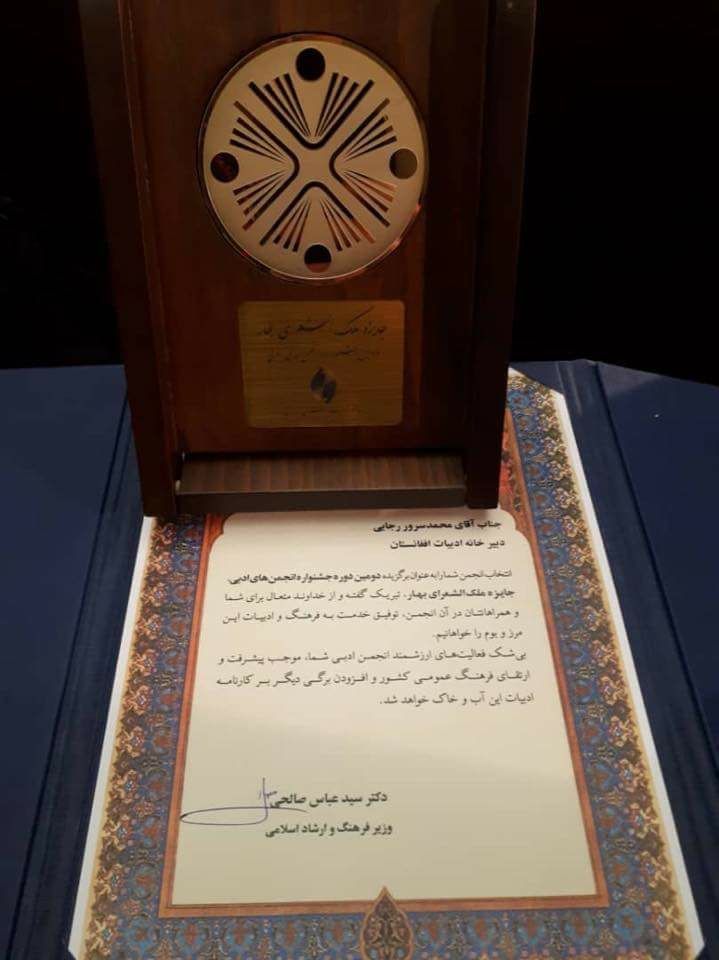 جایزه ملک الشعرای بهار
جناب آقای محمدسرور رجایی
دبیر خانه ادبیات افغانستان
انتخاب انجمن شما را به عنوان برگزیده دومین دوره جشنواره انجمن‌های ادبی،
جایزه ملک‌الشعرای بهار، تبریک گفته و از خداوند متعال برای شما
و همراهانتان در آن انجمن، توفیق خدمت به فرهنگ و ادبیات این
مرز و بوم را خواهانیم.
بی‌شک فعالیت‌های ارزشمند انجمن ادبی شما، موجب پیشرفت و
ارتقای فرهنگ عمومی کشور و افزودن برگی دیگر بر کارنامه
ادبیات این آب و خاک خواهد شد.
دکتر سید عباس صالحی
وزیر فرهنگ و ارشاد اسلامی